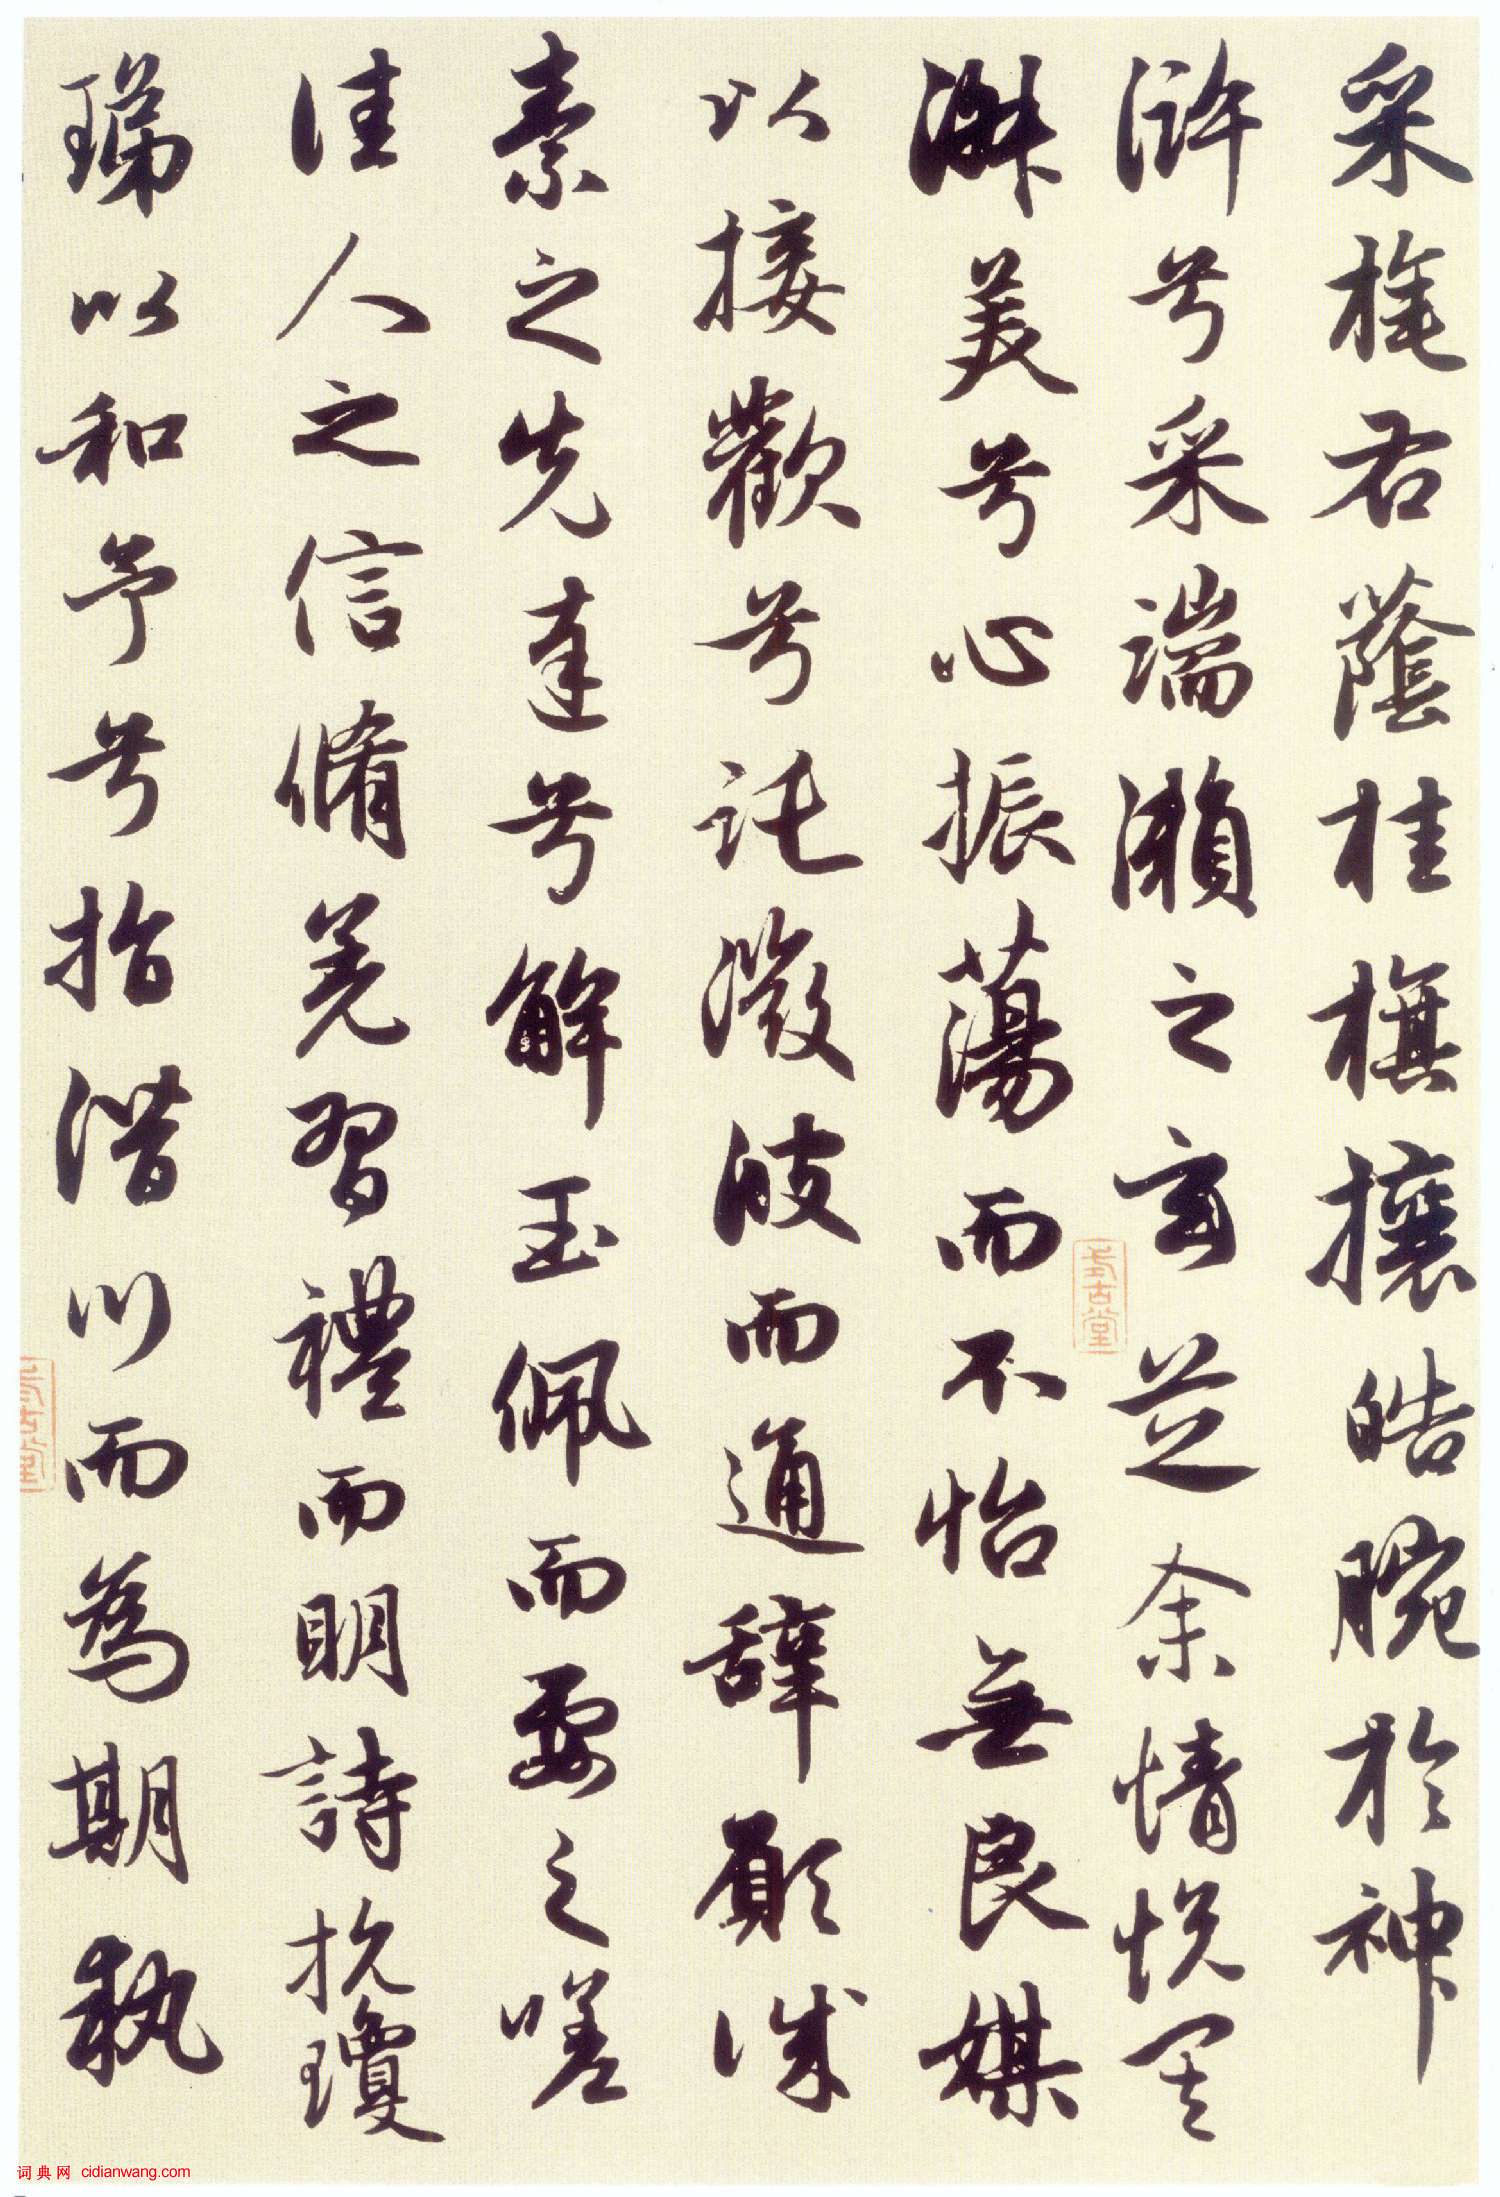 采旄右蔭桂旗攘皓腕於神
滸兮采湍瀨之玄芝余情悦其
淑美兮心振蕩而不怡無良媒
以接歡兮託微波而通辭願誠
素之先達兮解玉佩而要之嗟
佳人之信脩羌習禮而明詩抗瓊
珶以和予兮指潛川而為期執
寿古堂
词典网 cidianwang.com